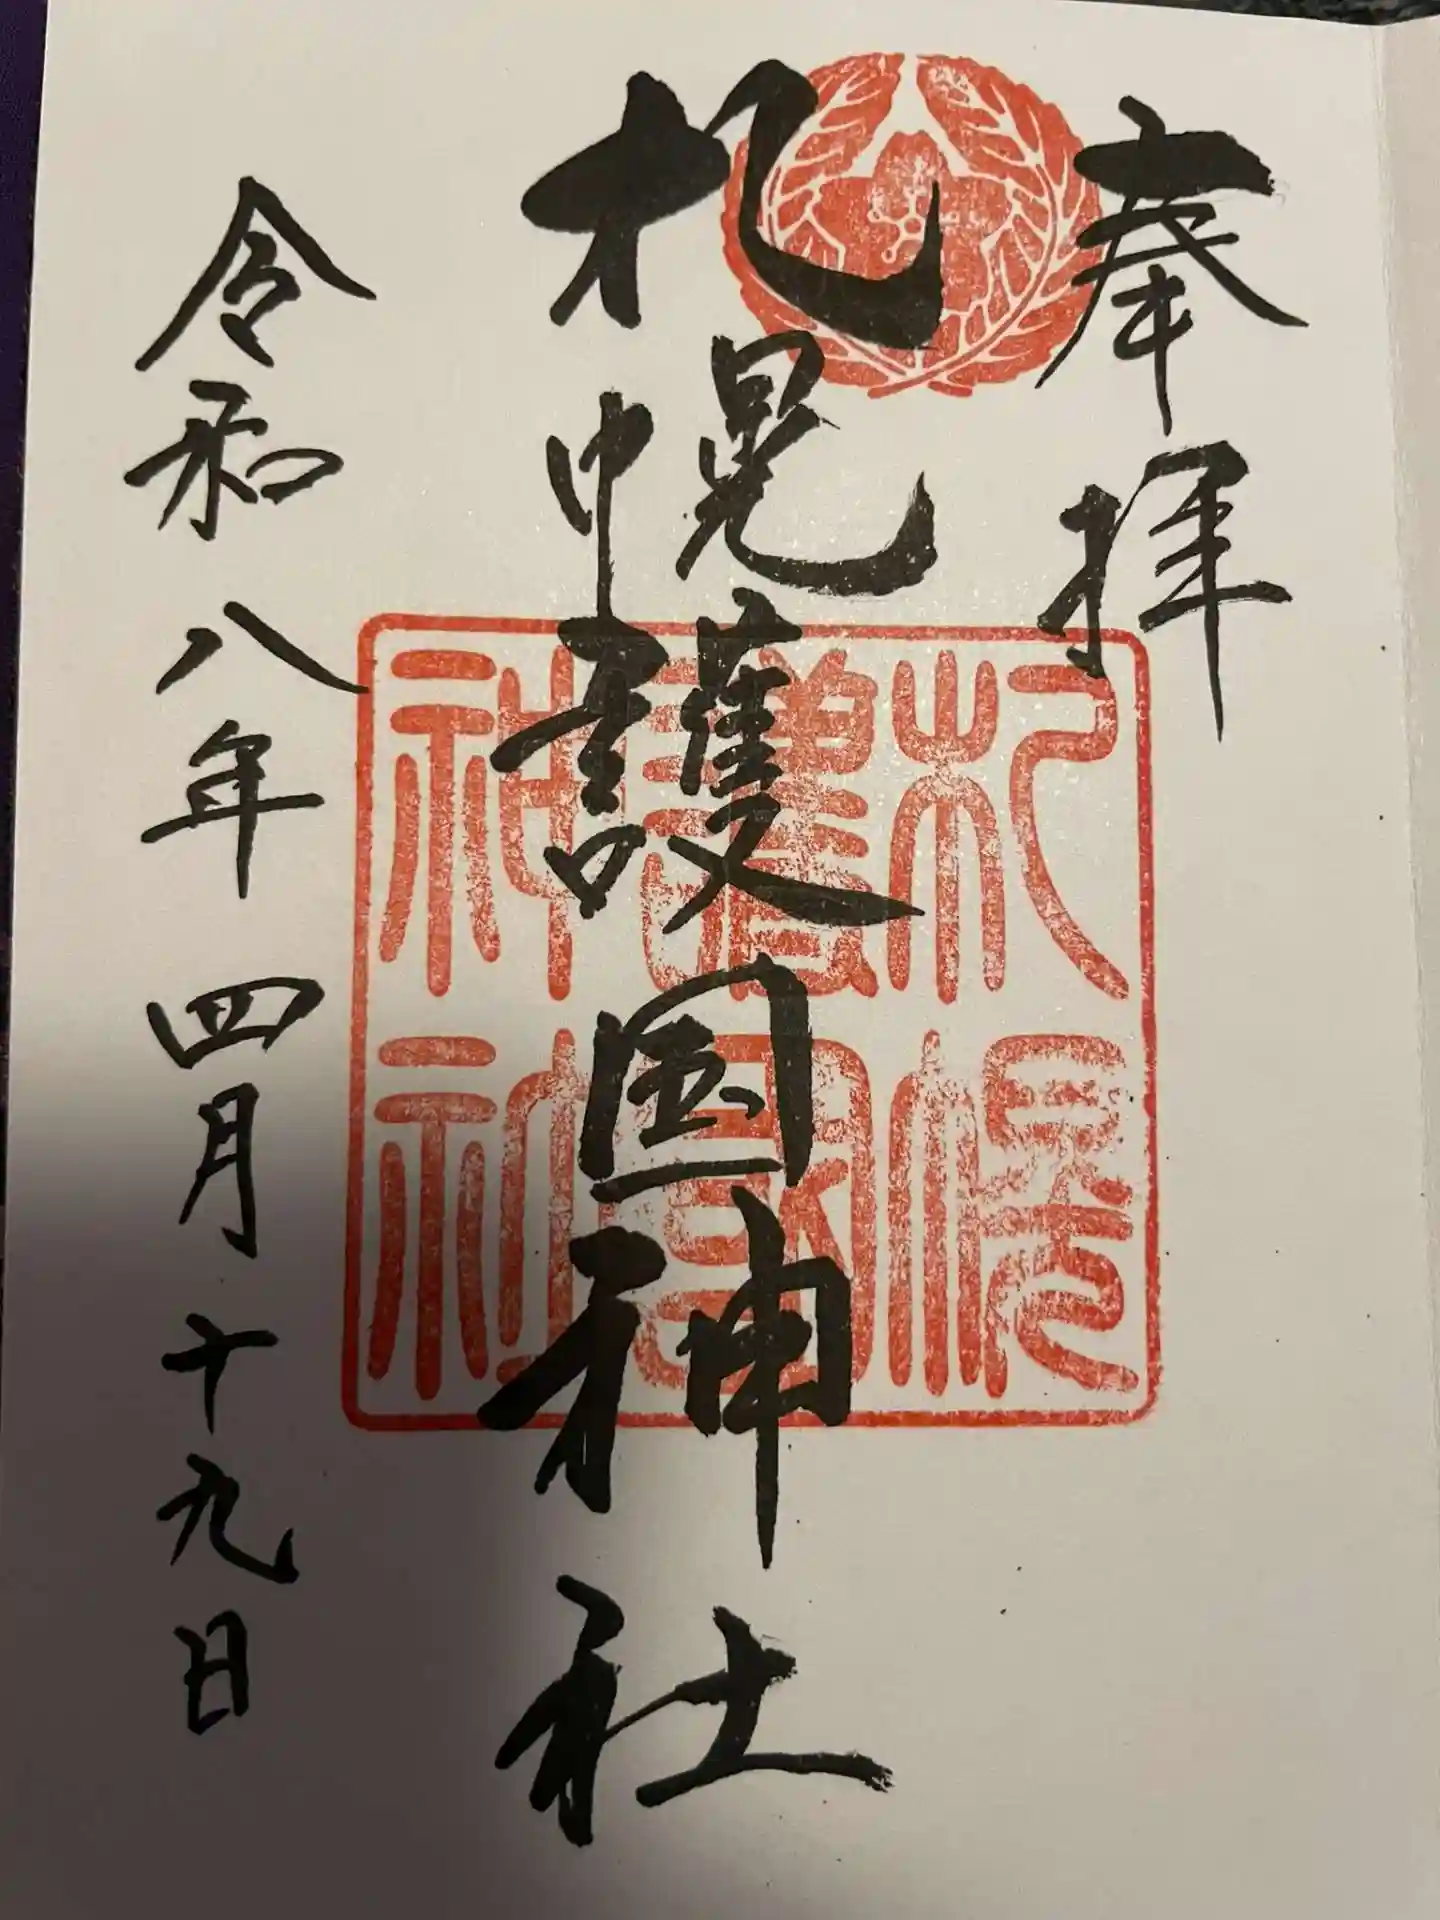 奉拝
札幌護国神社
令和八年四月十九日
札幌
護國
神社